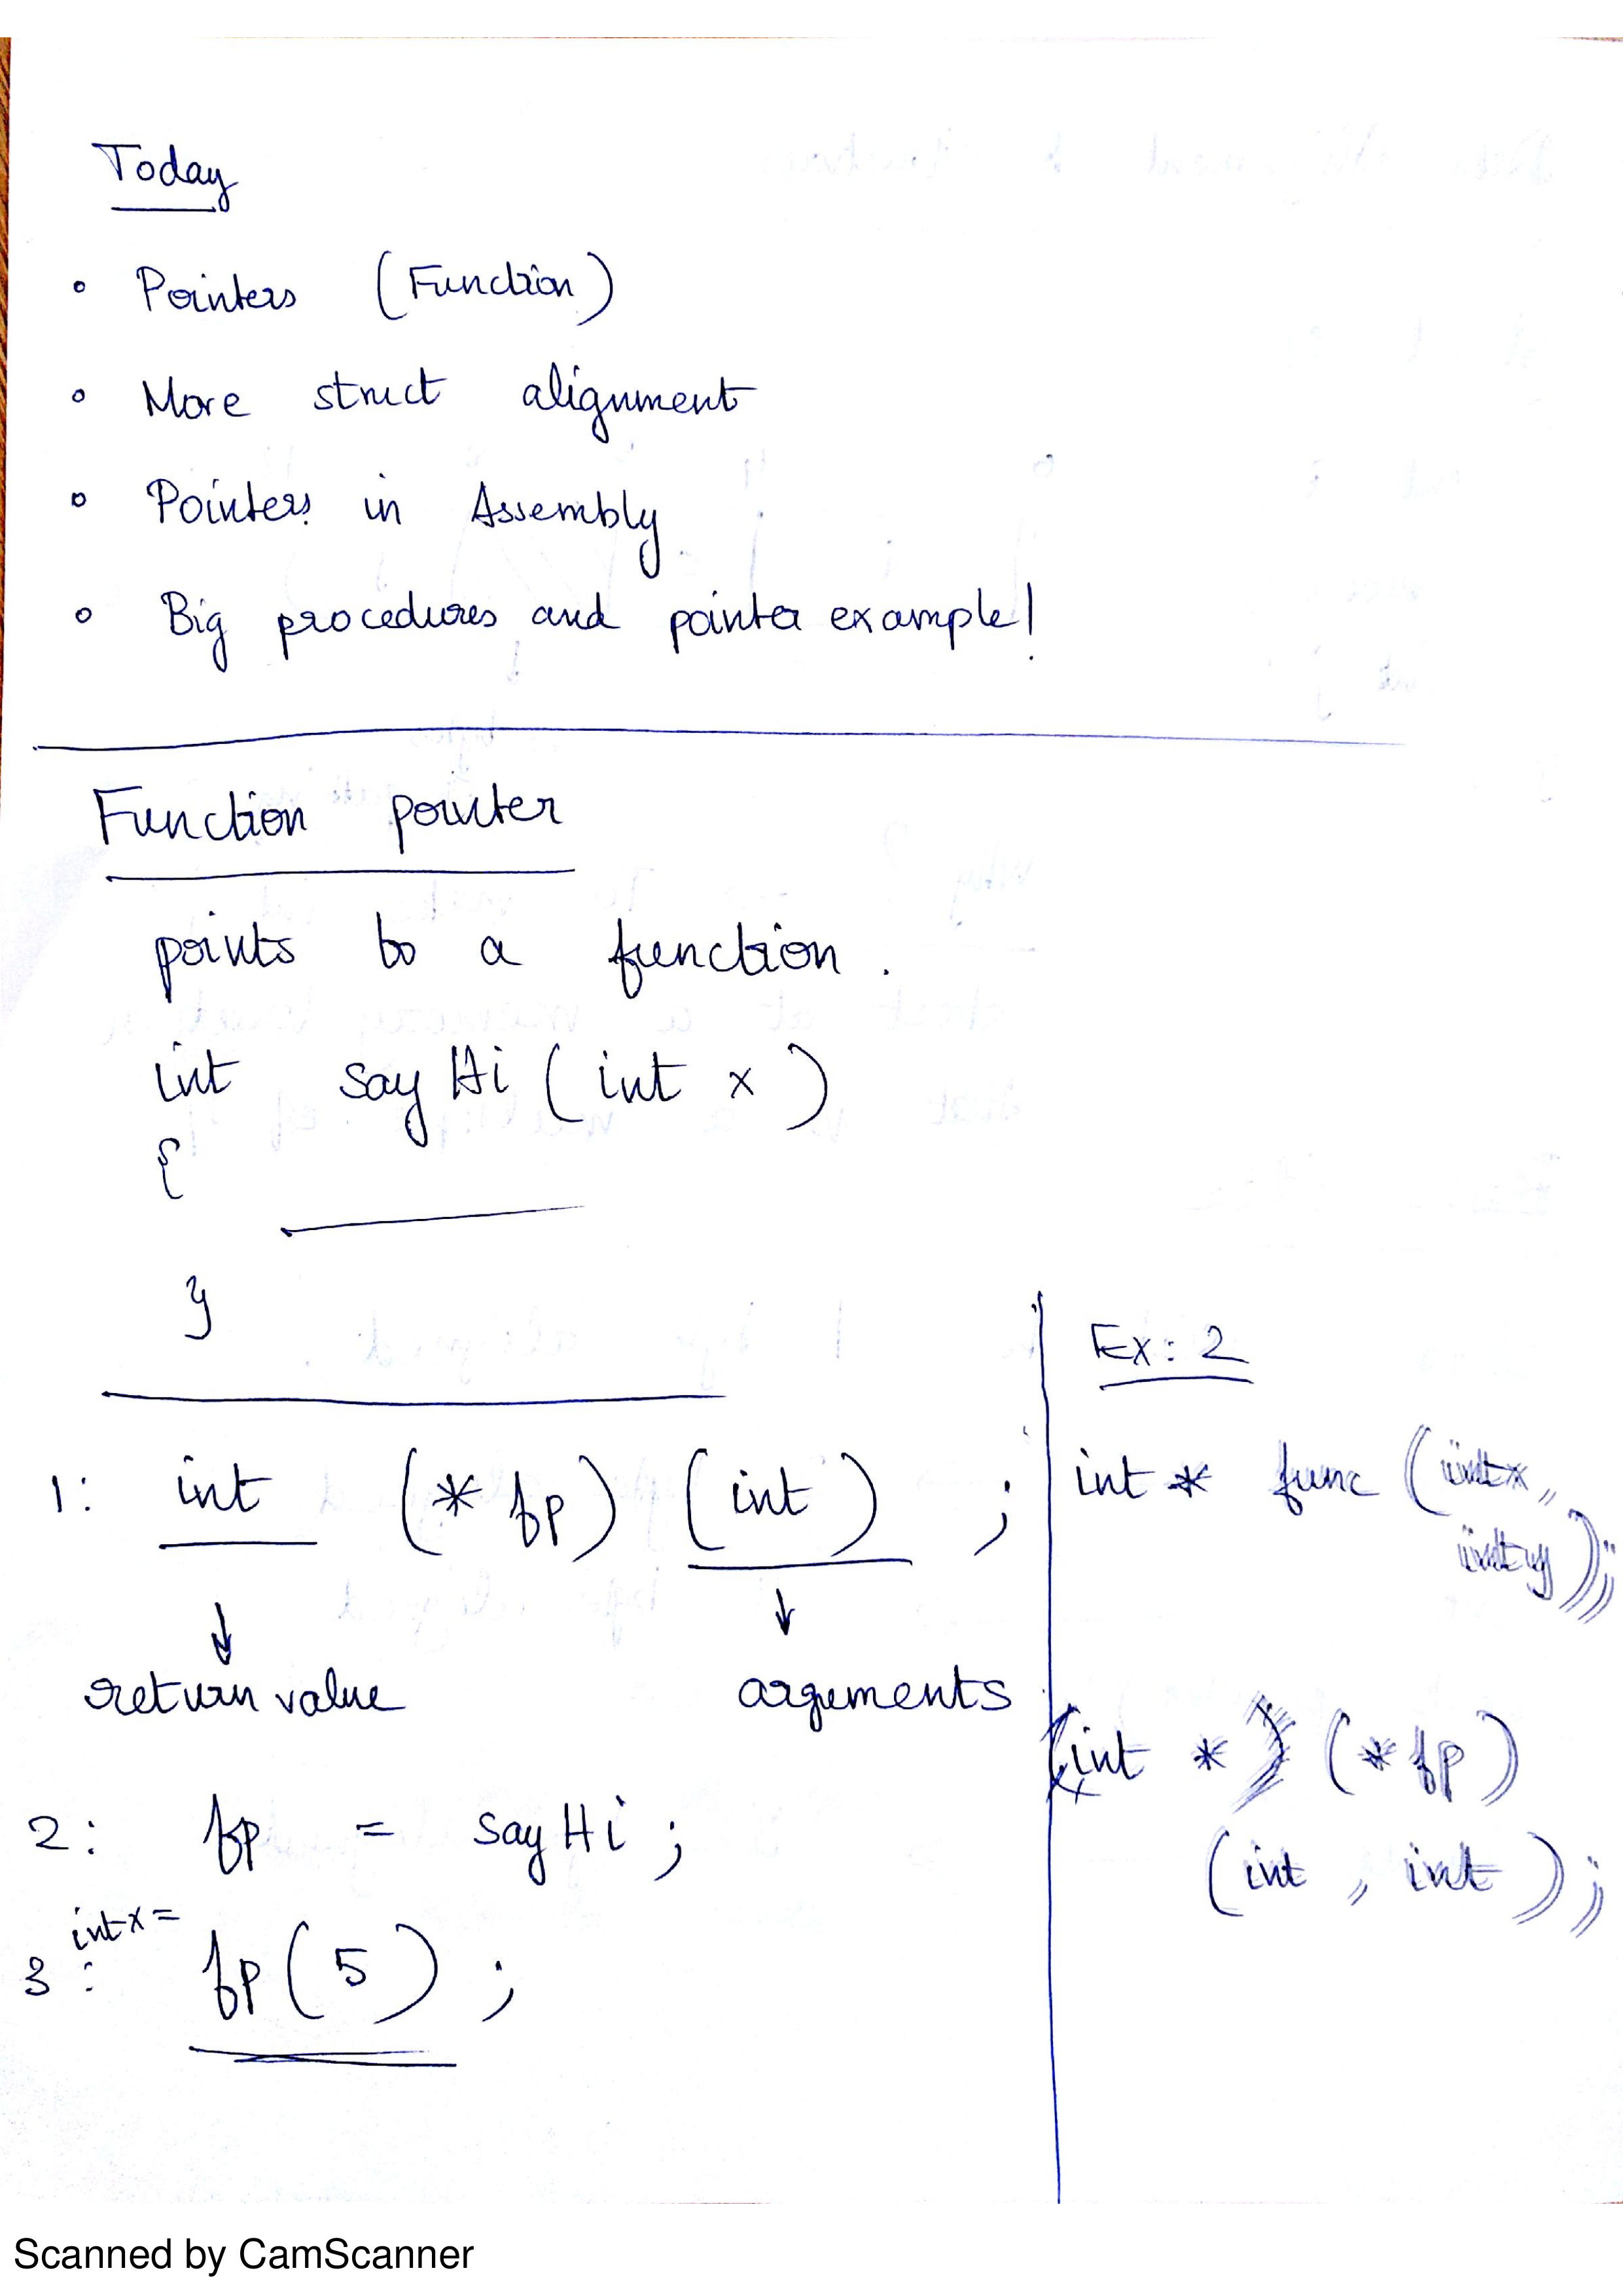 Today
• Pointers (Function)
• More struct alignment
• Pointers in Assembly
• Big procedures and pointer example!
Function pointer
points to a function.
int sayHi (int x)
{
}
1: int (* fp) (int) ;
return value
arguments
2: fp = sayHi ;
int x =
3: fp(5) ;
Ex: 2
int * func (int x,
int y);
(int *) (*fp)
(int , int );
Scanned by CamScanner